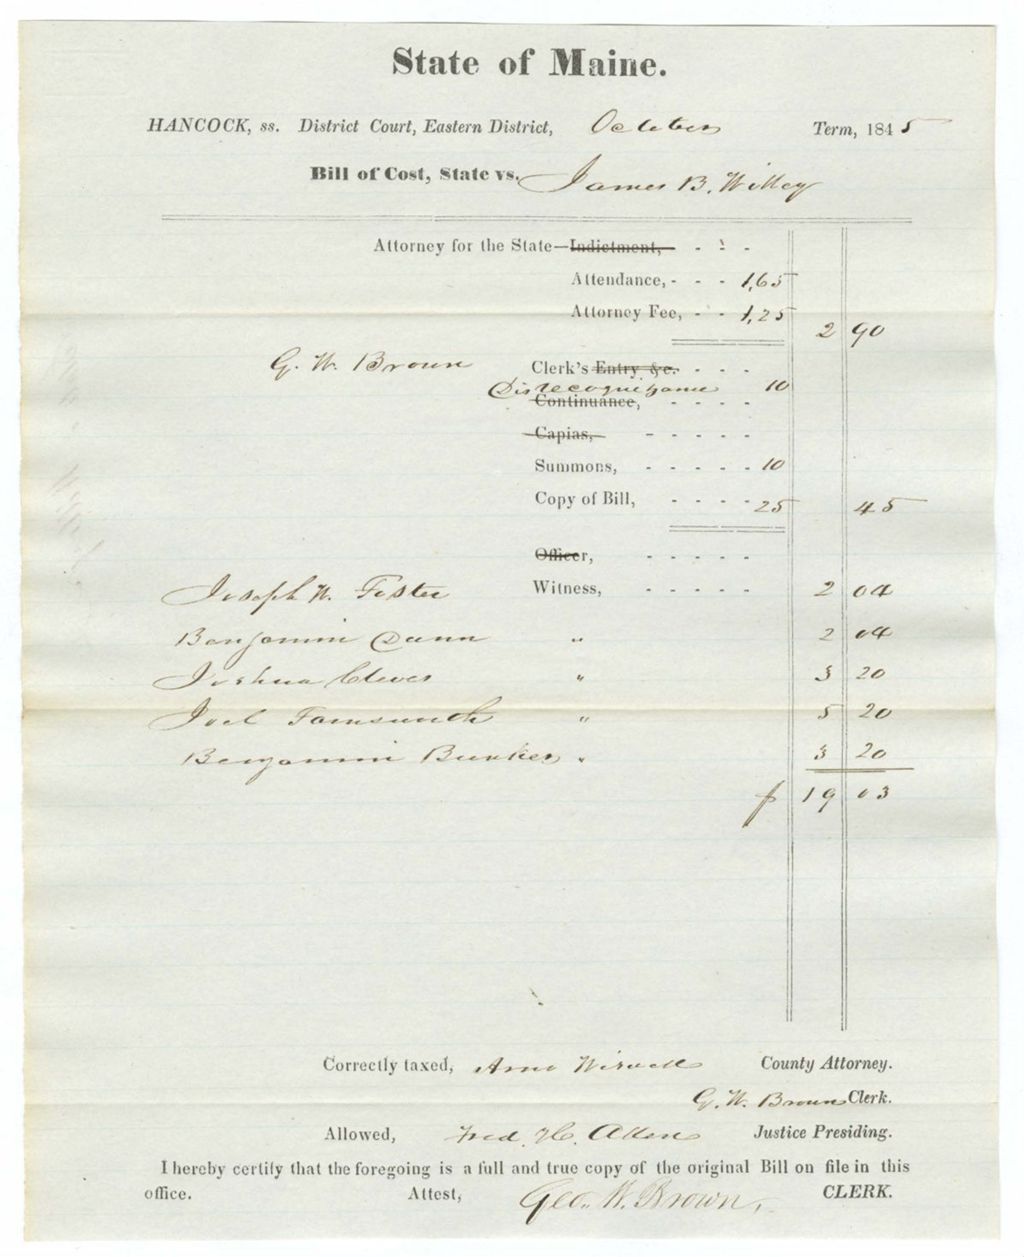 State of Maine.
HANCOCK, ss. District Court, Eastern District, October Term, 1845
Bill of Cost, State vs. James B. Willey
Attorney for the State—Indictment, - - -
Attendance, - - - 1,65
Attorney Fee, - - 1,25 2 90
G. W. Brown Clerk's Entry &c. - - -
Dis recognizance 10
Continuance, - - - -
Capias, - - - - -
Summons, - - - - - 10
Copy of Bill, - - - - 25 45
Officer, - - - - -
Joseph W. Foster Witness, - - - - - 2 04
Benjamin Dunn " 2 04
Joshua Cleves " 3 20
Joel Farnsworth " 5 20
Benjamin Bunker " 3 20
$ 19 03
Correctly taxed, Arno Wiswell County Attorney.
G. W. Brown Clerk.
Allowed, Fred. H. Allen Justice Presiding.
I hereby certify that the foregoing is a full and true copy of the original Bill on file in this
office. Attest, Geo. W. Brown, CLERK.